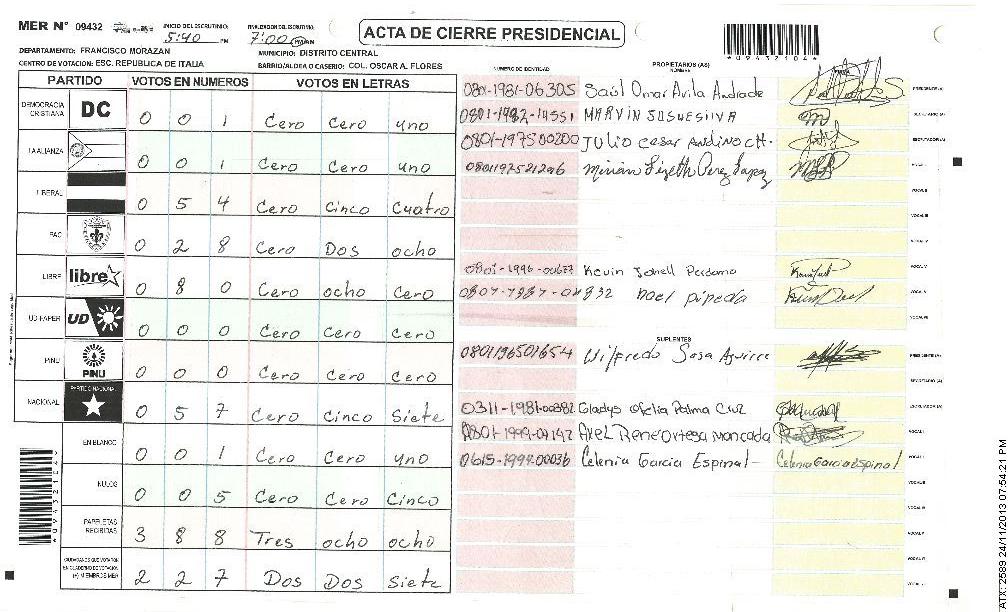 MER N° 09432
INICIO DEL ESCRUTINIO: 5:40 PM
FINALIZACION DEL ESCRUTINIO: 7:00 PM
ACTA DE CIERRE PRESIDENCIAL
*09432104*
DEPARTAMENTO: FRANCISCO MORAZAN
MUNICIPIO: DISTRITO CENTRAL
CENTRO DE VOTACION: ESC. REPUBLICA DE ITALIA
BARRIO/ALDEA O CASERIO: COL. OSCAR A. FLORES
PARTIDO VOTOS EN NUMEROS VOTOS EN LETRAS
DEMOCRACIA CRISTIANA DC 0 0 1 Cero Cero uno
LA ALIANZA 0 0 1 Cero Cero uno
LIBERAL 0 5 4 Cero Cinco Cuatro
PAC 0 2 8 Cero Dos ocho
LIBRE libre 0 8 0 Cero ocho Cero
UD-FAPER UD 0 0 0 Cero Cero Cero
PINU PINU 0 0 0 Cero Cero Cero
NACIONAL PARTIDO NACIONAL 0 5 7 Cero Cinco Siete
EN BLANCO 0 0 1 Cero Cero uno
NULOS 0 0 5 Cero Cero Cinco
PAPELETAS RECIBIDAS 3 8 8 Tres ocho ocho
CIUDADANOS QUE VOTARON EN CUADERNO DE VOTACION (+) MIEMBROS MER 2 2 7 Dos Dos Siete
NUMERO DE IDENTIDAD
PROPIETARIOS (AS)
NOMBRE
0801-1981-06305 Saúl Omar Avila Andrade PRESIDENTE (A)
0801-1982-14551 MARVIN SECRETARIO (A)
0801-1975 00200 JULIO Cesar ANDINO CH. ESCRUTADOR (A)
Mirian Lizeth Perez Lopez VOCAL I
VOCAL II
VOCAL III
Kevin Perdomo
0807-1987-04832 Noel pineda
SUPLENTES
0801196501654 Wilfredo Sosa Aguirre PRESIDENTE (A)
SECRETARIO (A)
0311-1981-00382 Gladys Ofelia Palma Cruz ESCRUTADOR (A)
Axel Rene Ortega Moncada VOCAL I
0615-1994-00036 Celenia Garcia Espinal Celenia Garcia Espinal VOCAL II
VOCAL III
ATX: 2589 24/11/2013 07:54:21 PM